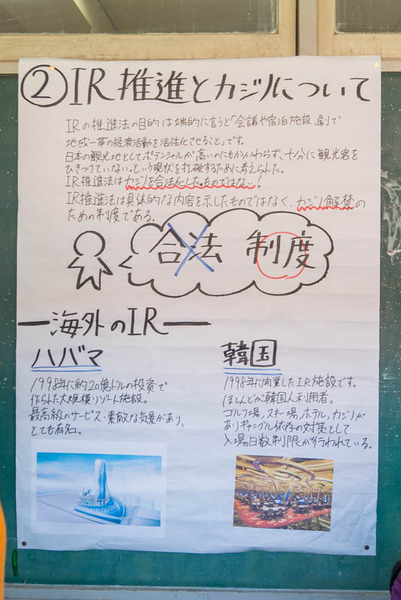 ②IR推進とカジノについて
IRの推進法の目的は端的に言うと「会議や宿泊施設、劇」で
地域一帯の経済活動を活性化させること」です。
日本の観光地としてポテンシャルが高いのにもかかわらず、十分に観光客を
ひきつけていない。という現状を打破するために考えられた。
IR推進法はカジノを合法化したものではない!
IR推進法は具体的な内容を示したものではなく、カジノ解禁の
ための制度である。
合法 制度
ー海外のIRー
ハバマ
1998年に約20億ドルの投資で
作られた大規模リゾート施設。
最高級のサービス・素敵な気候があり、
とても有名。
韓国
1998年に開業したIR施設です。
ほとんどが韓国人利用者。
ゴルフ場、スキー場、ホテル、カジノが
ありギャンブル依存の対策として
入場の日数制限が行われている。